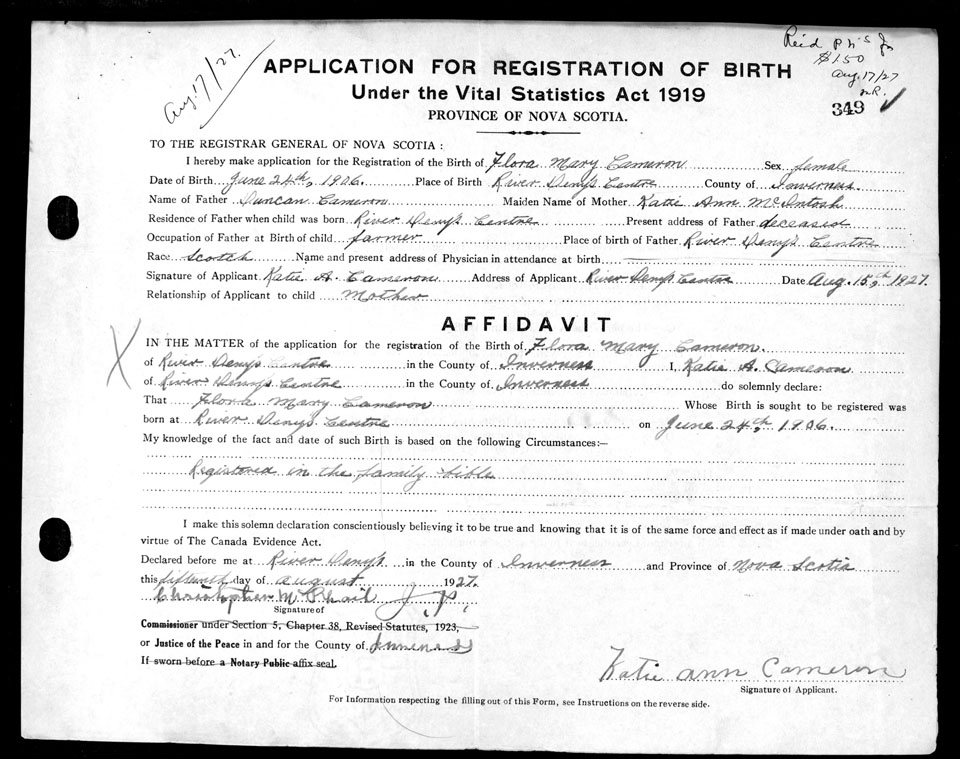 Aug. 17/27.
$1.50
Aug. 17/27
349
APPLICATION FOR REGISTRATION OF BIRTH
Under the Vital Statistics Act 1919
PROVINCE OF NOVA SCOTIA.
TO THE REGISTRAR GENERAL OF NOVA SCOTIA :
I hereby make application for the Registration of the Birth of Flora Mary Cameron Sex female
Date of Birth June 24th, 1906. Place of Birth River Denys Centre County of Inverness
Name of Father Duncan Cameron Maiden Name of Mother Katie Ann McIntosh
Residence of Father when child was born River Denys Centre Present address of Father deceased
Occupation of Father at Birth of child farmer Place of birth of Father River Denys Centre
Race Scotch Name and present address of Physician in attendance at birth
Signature of Applicant Katie A. Cameron Address of Applicant River Denys Centre Date Aug. 15th, 1927.
Relationship of Applicant to child Mother
AFFIDAVIT
IN THE MATTER of the application for the registration of the Birth of Flora Mary Cameron.
of River Denys Centre in the County of Inverness I, Katie A. Cameron
of River Denys Centre in the County of Inverness do solemnly declare:
That Flora Mary Cameron Whose Birth is sought to be registered was
born at River Denys Centre on June 24th, 1906.
My knowledge of the fact and date of such Birth is based on the following Circumstances:—
Registered in the family bible
I make this solemn declaration conscientiously believing it to be true and knowing that it is of the same force and effect as if made under oath and by
virtue of The Canada Evidence Act.
Declared before me at River Denys in the County of Inverness and Province of Nova Scotia
this fifteenth day of August 1927.
Christopher McPhail J.P.
Signature of
Commissioner under Section 5, Chapter 38, Revised Statutes, 1923,
or Justice of the Peace in and for the County of Inverness
If sworn before a Notary Public affix seal.
Katie Ann Cameron
Signature of Applicant.
For Information respecting the filling out of this Form, see Instructions on the reverse side.